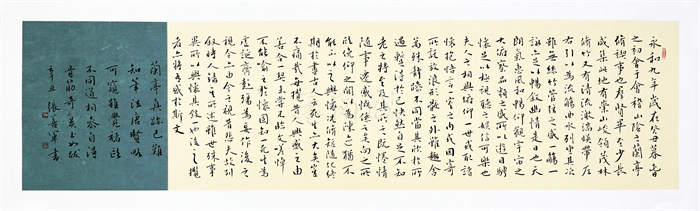 永和九年歲在癸丑暮春
之初會于會稽山陰之蘭亭
脩禊事也羣賢畢至少長
咸集此地有崇山峻領茂林
脩竹又有清流激湍暎帶左
右引以為流觴曲水列坐其次
雖無絲竹管弦之盛一觴一
詠亦足以暢敘幽情是日也天
朗氣清惠風和暢仰觀宇宙之
大俯察品類之盛所以遊目騁
懷足以極視聽之娛信可樂也
夫人之相與俯仰一世或取諸
懷抱悟言一室之內或因寄
所託放浪形骸之外雖趣舍
萬殊靜躁不同當其欣於所
遇暫得於己快然自足不知
老之將至及其所之既惓情
隨事遷感慨係之矣向之所
欣俛仰之間以為陳迹猶不
能不以之興懷況脩短隨化終
期於盡古人云死生亦大矣豈
不痛哉每攬昔人興感之由
若合一契未嘗不臨文嗟悼
不能喻之於懷固知一死生為
虛誕齊彭殤為妄作後之
視今亦由今之視昔悲夫故列
敘時人錄其所述雖世殊事
異所以興懷其致一也後之攬
者亦將有感於斯文
蘭亭真跡已難
知筆法唐賢略
可窺雅覺稿臨
不同道相參自得
辛丑張軍書